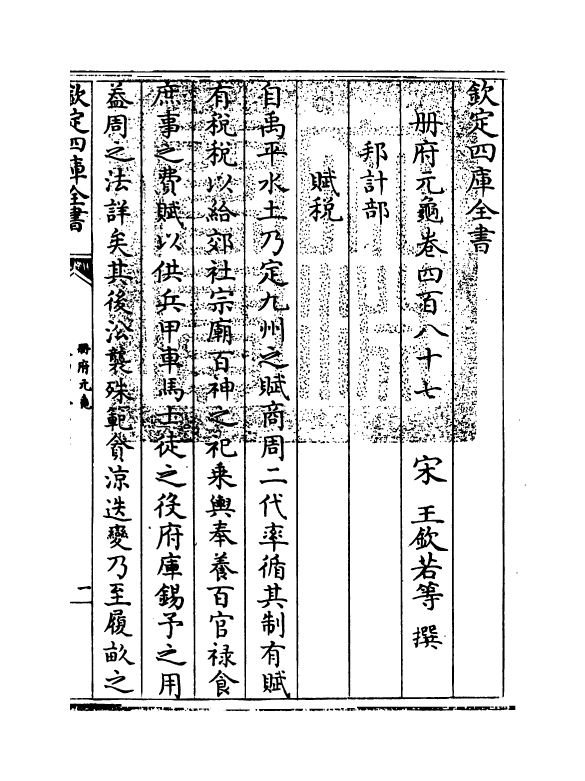 欽定四庫全書
册府元龜卷四百八十七　宋　王欽若等　撰
邦計部
賦税
自禹平水土乃定九州之賦商周二代率循其制有賦
有税税以給郊社宗廟百神之祀乗輿奉養百官禄食
庶事之費賦以供兵甲車馬士徒之役府庫錫予之用
葢周之法詳矣其後沿襲殊範貪涼迭變乃至履畝之
欽定四庫全書
册府元龜
一